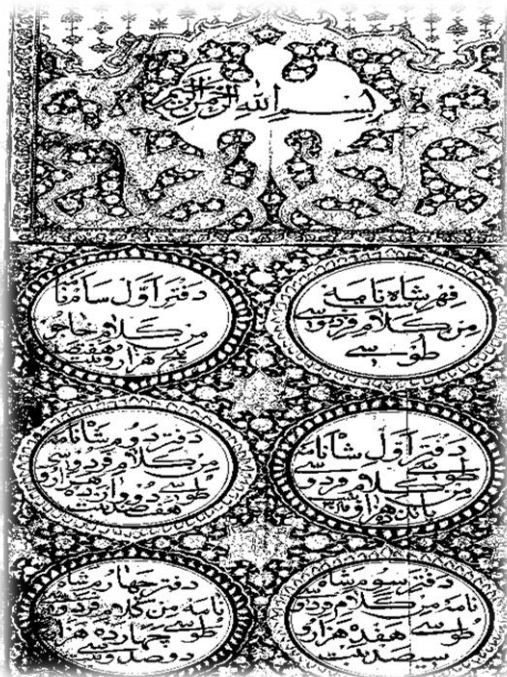 بسم الله الرحمن الرحيم
فهر شاه نامه
من كلام فردوسی
طوسی
دفتر اول سامنا
من كلام خاجو
هزار و
دفتر اول شانامه
من كلام فردوسی
طوسی
دفتر دوم شانامه
من كلام فردوسی
طوسی دووازده هزار و
هفصد بیت
دفتر سوم شاه
نامه من كلام فردو
طوسی هفده هزار و
سیصد بیت
دفتر چهارم شاه
نامه من كلام فردو
طوسی چهارده هزار
دوصد و بیت